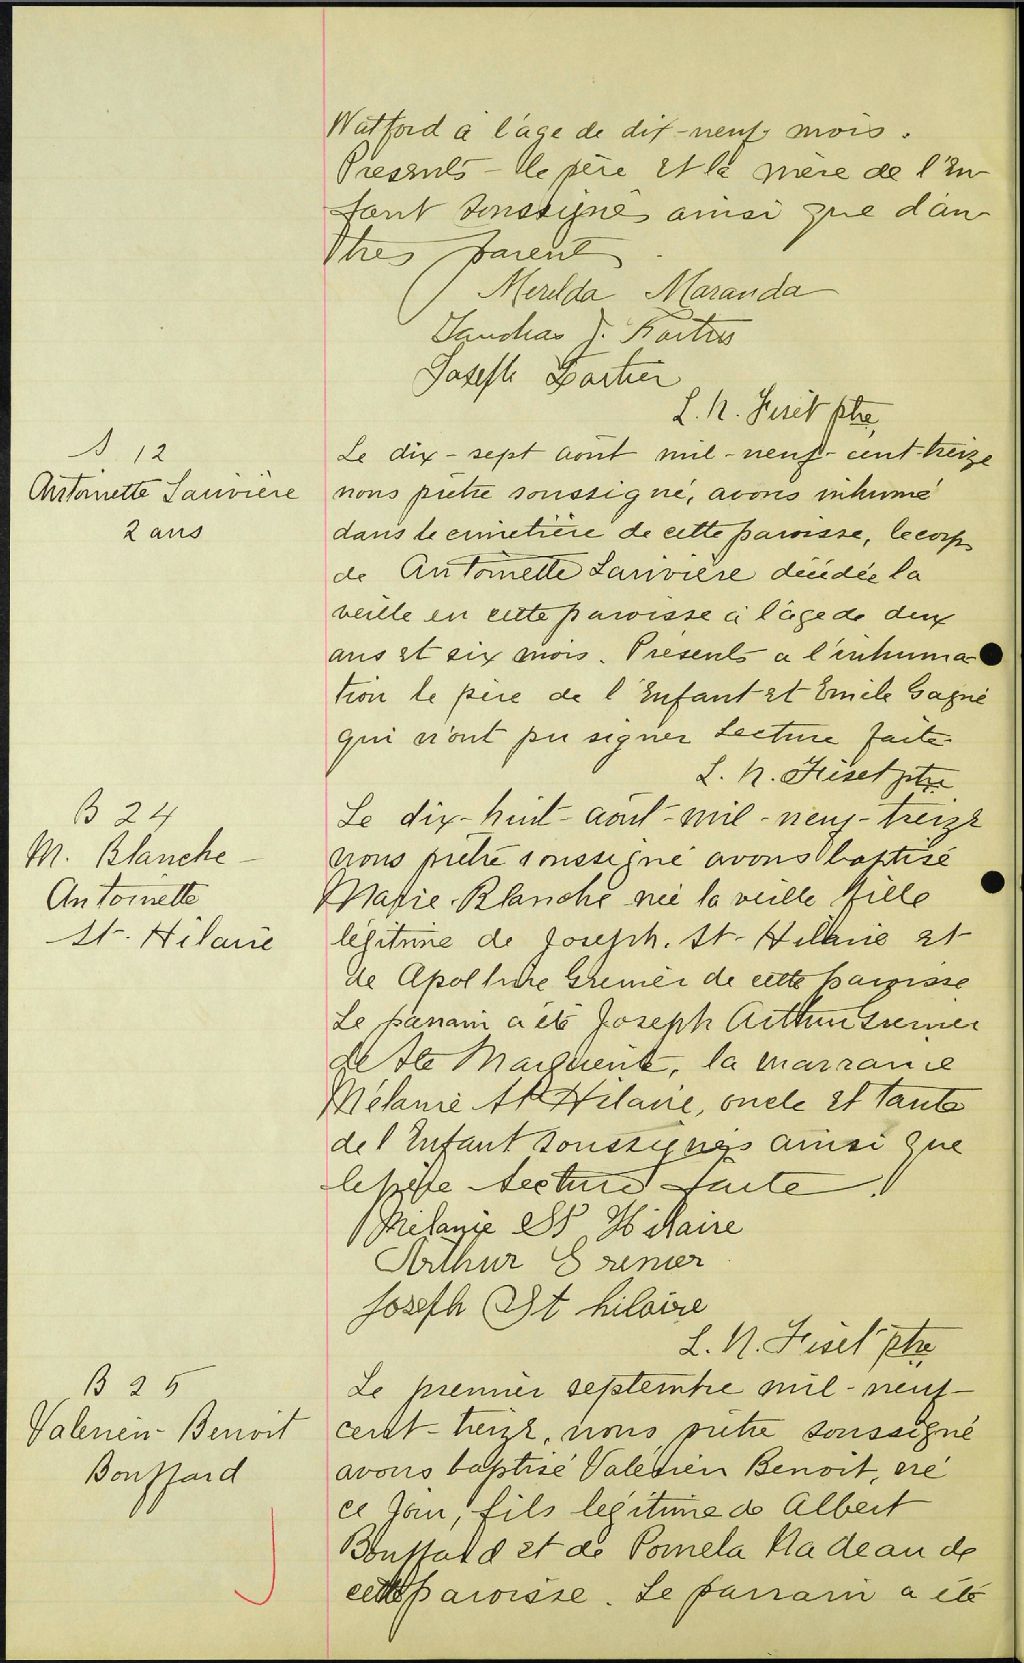 Watford à l'âge de dix-neuf mois.
Présents - le père et la mère de l'en-
fant soussignés ainsi que d'au-
tres parents.
Merilda Maranda
J. Fortier
Joseph Fortier
L. N. Fiset ptre,
S 12
Antoinette Larivière
2 ans
Le dix-sept août mil-neuf-cent-treize
nous prêtre soussigné, avons inhumé
dans le cimetière de cette paroisse, le corps
de Antoinette Larivière décédée la
veille en cette paroisse à l'âge de deux
ans et six mois. Présents a l'inhuma-
tion le père de l'Enfant et Emile Gagné
qui n'ont pu signer Lecture faite
L. N. Fiset ptre
B 24
M. Blanche-
Antoinette
St-Hilaire
Le dix-huit-août-mil-neuf-treize
nous prêtre soussigné avons baptisé
Marie-Blanche née la veille fille
légitime de Joseph. St-Hilaire et
de Apolline Grenier de cette paroisse
Le parrain a été Joseph Arthur Grenier
de Ste Marguerite, la marraine
Mélanie St Hilaire, oncle et tante
de l'Enfant soussignés ainsi que
le père Lecture faite.
Mélanie St Hilaire
Arthur Grenier
Joseph St hilaire
L. N. Fiset ptre
B 25
Valérien-Benoit
Bouffard
Le premier septembre mil-neuf-
cent-treize, nous prêtre soussigné
avons baptisé Valérien Benoit, né
ce jour, fils légitime de Albert
Bouffard et de Pomela Nadeau de
cette paroisse. Le parrain a été